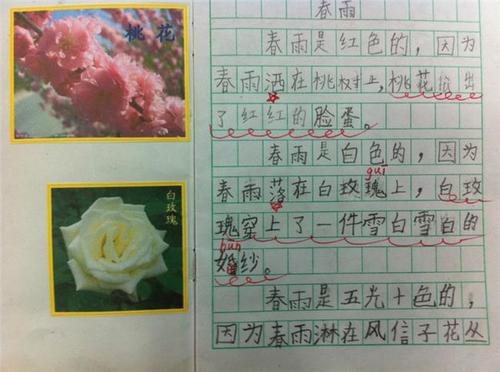 桃花
白玫瑰
春雨
春雨是红色的，因为
春雨洒在桃树上，桃花出
了红红的脸蛋。
春雨是白色的，因为
guī
春雨落在白玫瑰上，白玫
瑰穿上了一件雪白雪白的
hūn
婚纱。
春雨是五光十色的，
因为春雨淋在风信子花丛